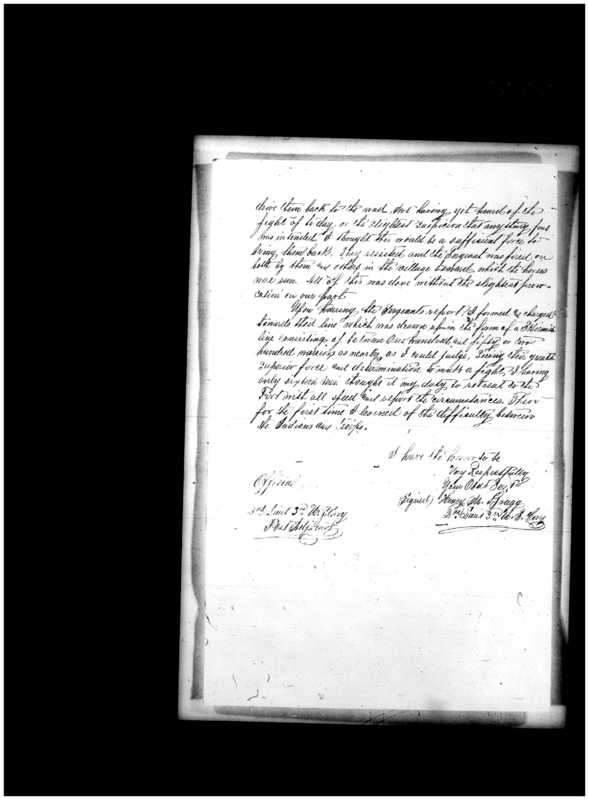 drive them back to the road. Not having yet heard of the
fight of to day, or the slightest suspicion that any thing
was intended I thought this would be a sufficient force to
bring them back. They resisted and the Sergeant was fired on
both by them and others in the village toward which the horses
were run. All of this was done without the slightest provo-
cation on our part.
Upon hearing the Sergeants report I formed & charged
towards their line which was drawn up in the form of a
line consisting of between One hundred and fifty or two
hundred making as nearly as I could judge. Seeing this greatly
superior force and determination to make a fight, I having
only sixteen men thought it my duty to retreat to the
Fort with all speed and report the circumstances. There
for the first time I learned of the difficulty between
the Indians and Troops.
I have the honor to be
Very Respectfully
Your Obdt Servt
(Signed) Henry M. Bragg
2nd Lieut 3rd U.S. Cavy
Official
2nd Lieut 3rd U.S. Cavy
Post Adjutant